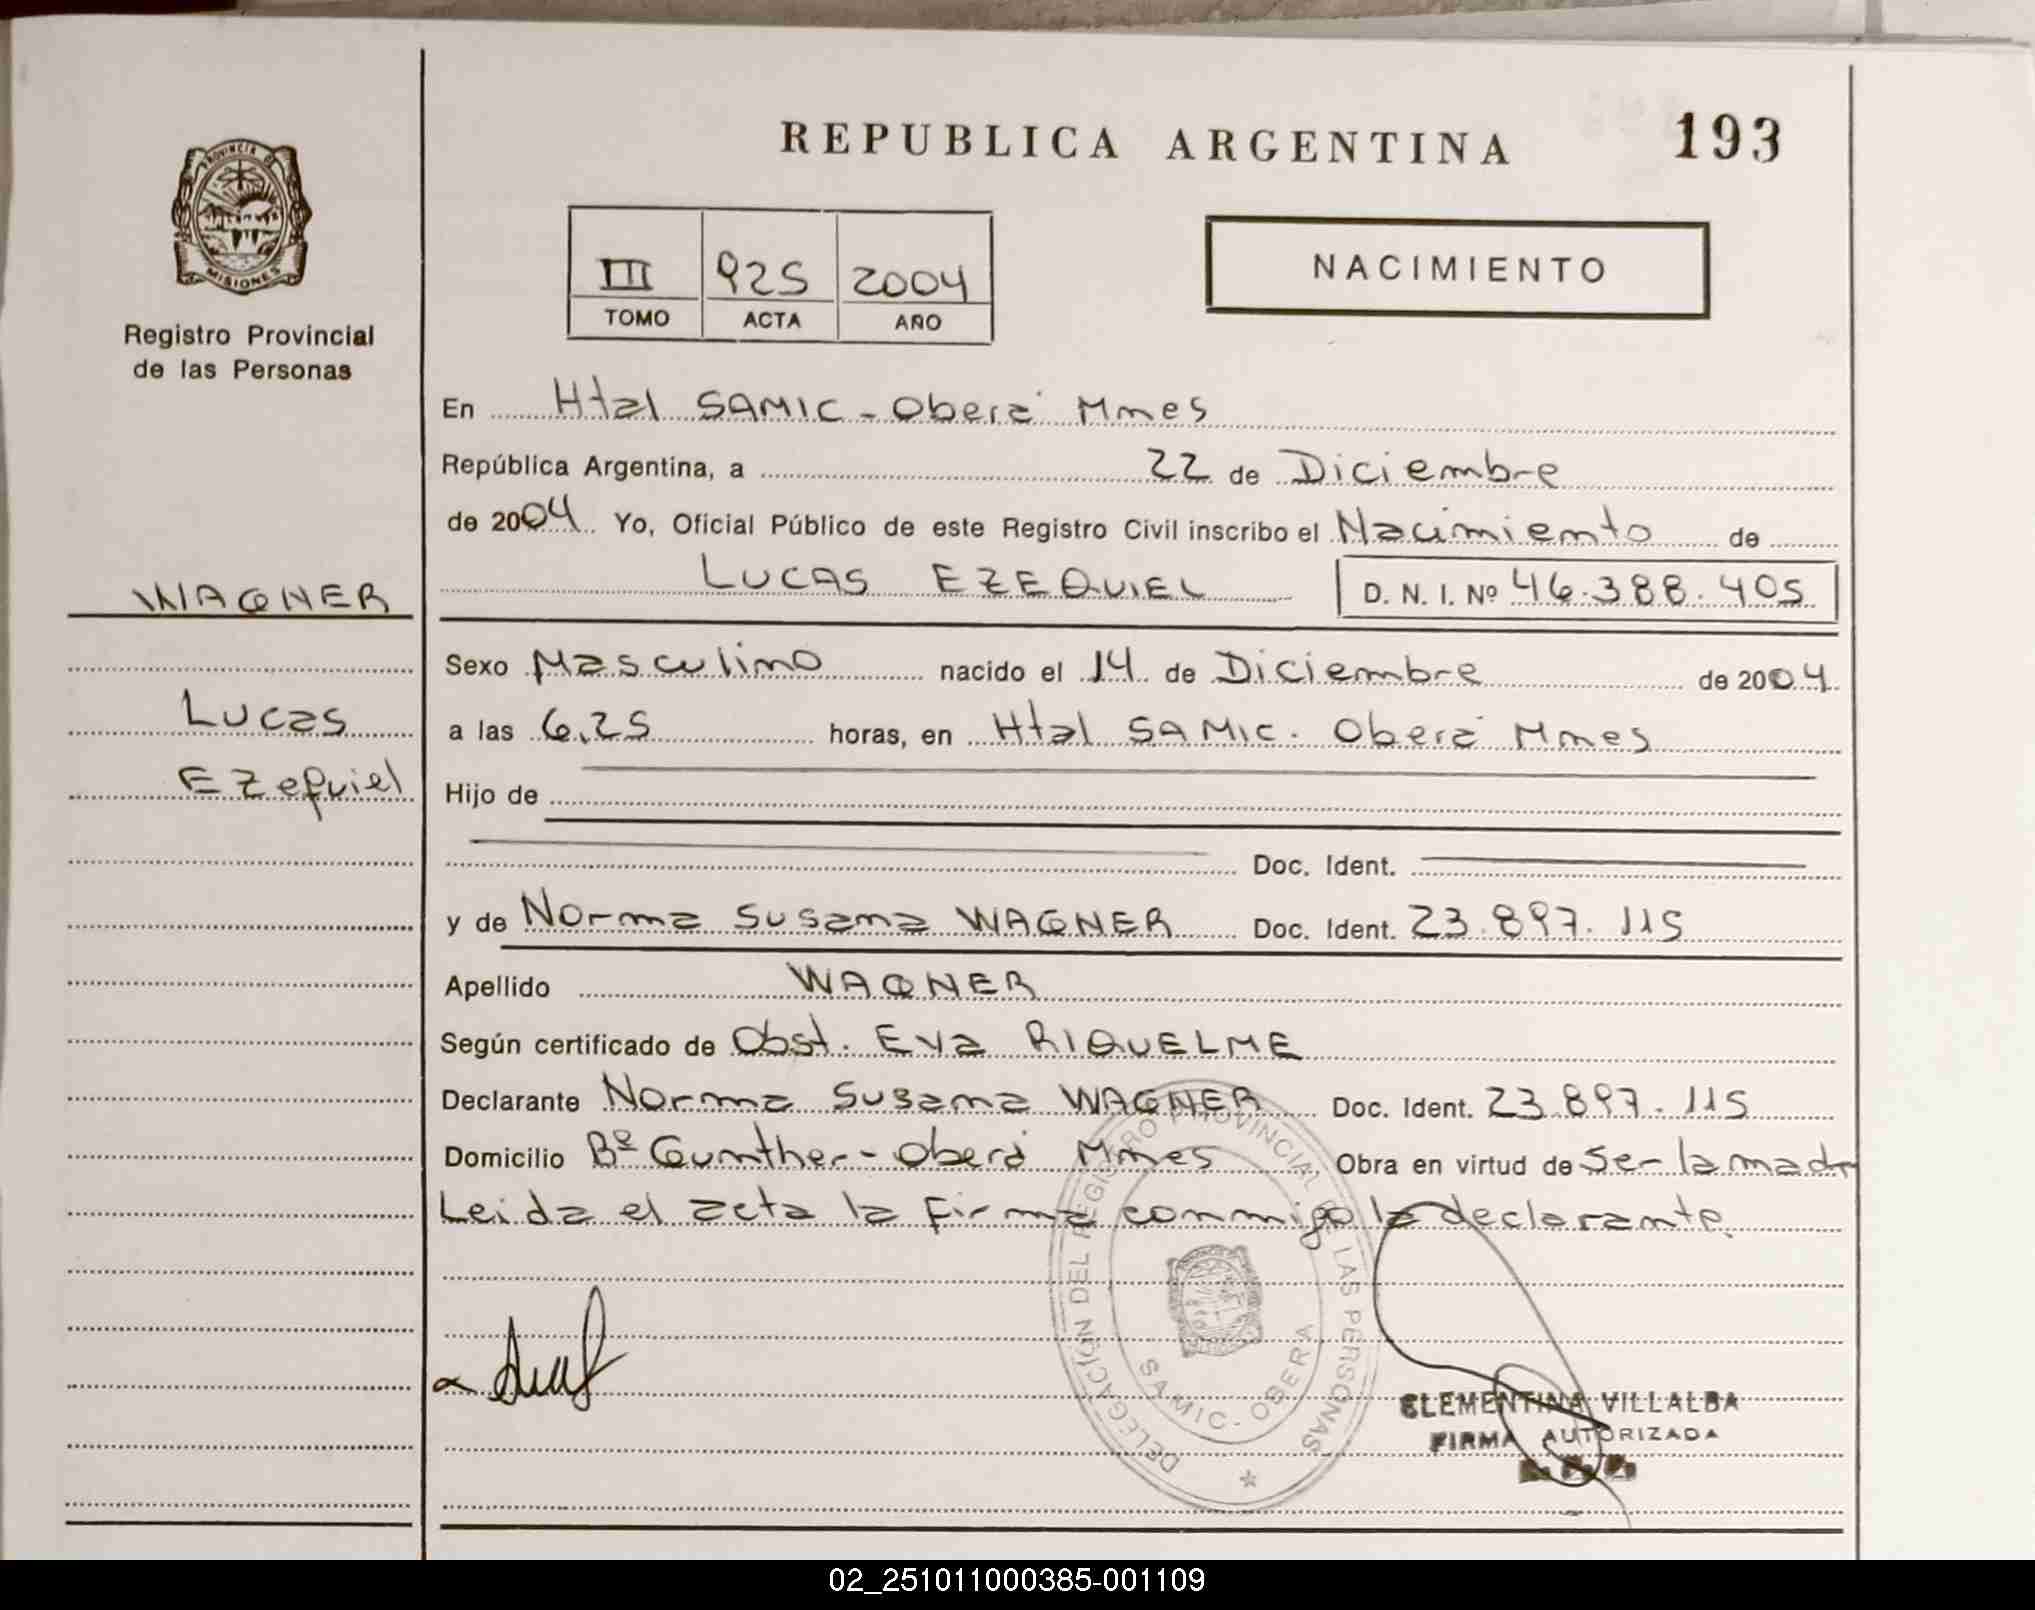 REPUBLICA ARGENTINA 193
PROVINCIA DE
MISIONES
Registro Provincial
de las Personas
III 925 2004
TOMO ACTA AÑO
NACIMIENTO
En Htal SAMIC - Oberá Mnes
República Argentina, a 22 de Diciembre
de 2004 Yo, Oficial Público de este Registro Civil inscribo el Nacimiento de
LUCAS EZEQUIEL D. N. I. Nº 46.388.405
WAGNER
Lucas
Ezequiel
Sexo Masculino nacido el 14 de Diciembre de 2004
a las 6,25 horas, en Htal SAMIC. Oberá Mnes
Hijo de
Doc. Ident.
y de Norma Susana WAGNER Doc. Ident. 23.897.115
Apellido WAGNER
Según certificado de Obst. Eva RIQUELME
Declarante Norma Susana WAGNER Doc. Ident. 23.897.115
Domicilio Bº Gunther - Oberá Mnes Obra en virtud de Ser la madr
Leida el acta la firma conmigo la declarante.
DELEGACIÓN DEL REGISTRO PROVINCIAL DE LAS PERSONAS
SAMIC - OBERA
CLEMENTINA VILLALBA
FIRMA AUTORIZADA
02_251011000385-001109